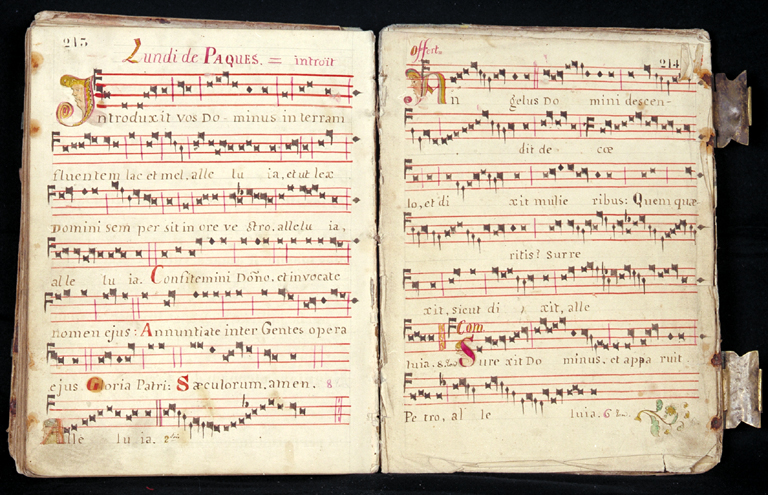 213
Lundi de PAQUES. = introit
Introduxit vos Do-minus in terram
fluentem lac et mel, alle lu ia, et ut lex
Domini sem per sit in ore ve stro. allelu ia,
alle lu ia. Confitemini Dño. et invocate
nomen ejus: Annuntiate inter Gentes opera
ejus Gloria Patri: Sæculorum, amen. 8
Alle lu ia.
offert.
214
An gelus Do mini descen-
dit de cœ
lo, et di xit mulie ribus: Quem quæ
ritis? Surre
xit, sicut di xit, alle
Com
luia. 8. Sure xit Do minus, et appa ruit
Pe tro, al le luia. 6